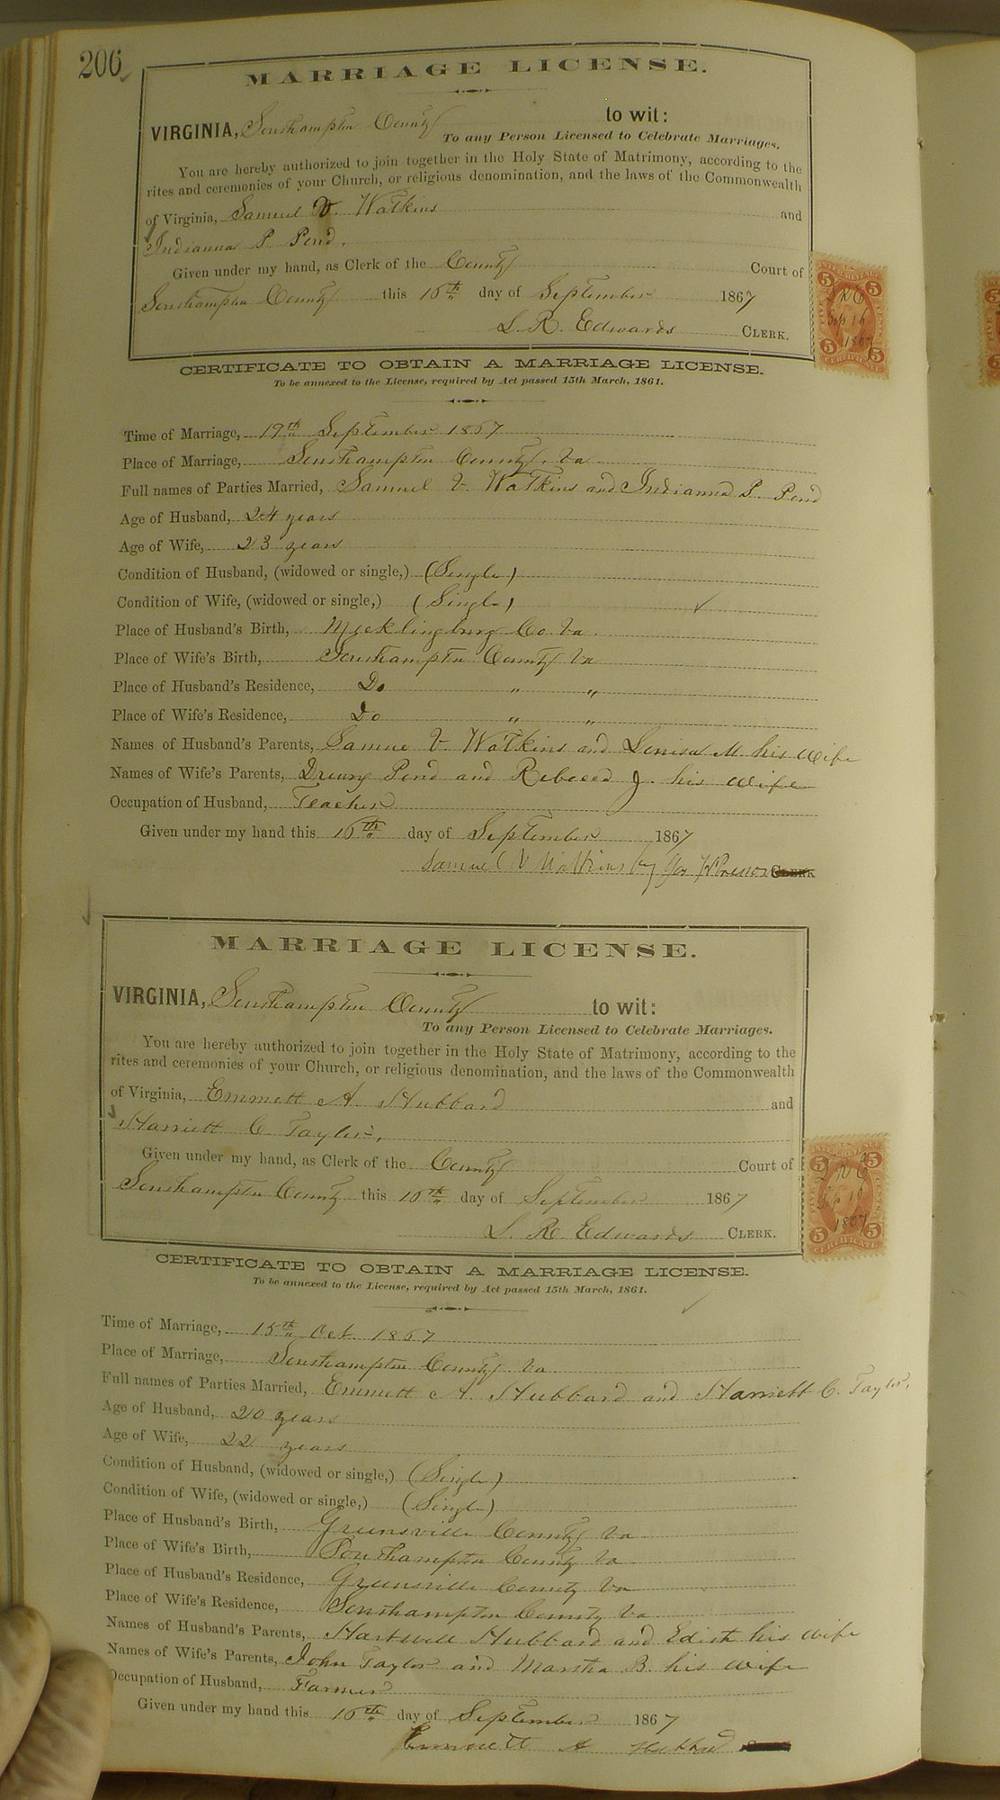 206
MARRIAGE LICENSE.
VIRGINIA, Southampton County to wit:
To any Person Licensed to Celebrate Marriages.
You are hereby authorized to join together in the Holy State of Matrimony, according to the
rites and ceremonies of your Church, or religious denomination, and the laws of the Commonwealth
of Virginia, Samuel V. Watkins and
Indianna P. Pond.
Given under my hand, as Clerk of the County Court of
Southampton County this 16th day of September 1867
L. R. Edwards CLERK.
5 5
Sep 16
1867
5 5
CERTIFICATE
CERTIFICATE TO OBTAIN A MARRIAGE LICENSE.
To be annexed to the License, required by Act passed 15th March, 1861.
Time of Marriage, 19th September 1867
Place of Marriage, Southampton County, Va
Full names of Parties Married, Samuel V. Watkins and Indianna P. Pond
Age of Husband, 24 years
Age of Wife, 23 years
Condition of Husband, (widowed or single,) (Single)
Condition of Wife, (widowed or single,) (Single)
Place of Husband's Birth, Mecklingburg Co. Va.
Place of Wife's Birth, Southampton County Va
Place of Husband's Residence, Do " "
Place of Wife's Residence, Do " "
Names of Husband's Parents, Samue V. Watkins and Louisa M. his wife
Names of Wife's Parents, Drewry Pond and Rebecca J. his wife
Occupation of Husband, Teacher
Given under my hand this 16th day of September 1867
Samuel V Watkins by CLERK
MARRIAGE LICENSE.
VIRGINIA, Southampton County to wit:
To any Person Licensed to Celebrate Marriages.
You are hereby authorized to join together in the Holy State of Matrimony, according to the
rites and ceremonies of your Church, or religious denomination, and the laws of the Commonwealth
of Virginia, Emmett A. Hubbard and
Harriett C Taylor.
Given under my hand, as Clerk of the County Court of
Southampton County this 16th day of September 1867
L. R. Edwards CLERK.
5 5
Sep 16
1867
5 5
CERTIFICATE
CERTIFICATE TO OBTAIN A MARRIAGE LICENSE.
To be annexed to the License, required by Act passed 15th March, 1861.
Time of Marriage, 15th Oct. 1867
Place of Marriage, Southampton County Va
Full names of Parties Married, Emmett A. Hubbard and Harriett C. Taylor.
Age of Husband, 20 years
Age of Wife, 22 years
Condition of Husband, (widowed or single,) (Single)
Condition of Wife, (widowed or single,) (Single)
Place of Husband's Birth, Greensville County Va
Place of Wife's Birth, Southampton County Va
Place of Husband's Residence, Greensville County Va
Place of Wife's Residence, Southampton County Va
Names of Husband's Parents, Hartwell Hubbard and Edith his wife
Names of Wife's Parents, John Taylor and Martha B. his wife
Occupation of Husband, Farmer
Given under my hand this 16th day of September 1867
Emmett A Hubbard